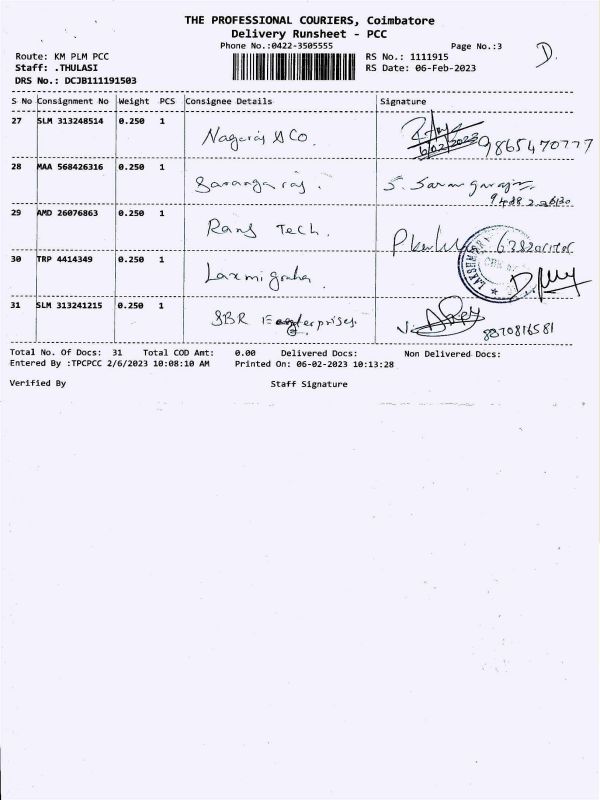 THE PROFESSIONAL COURIERS, Coimbatore
Delivery Runsheet - PCC
Phone No.:0422-3505555
Page No.:3
D.
Route: KM PLM PCC
RS No.: 1111915
Staff: .THULASI
RS Date: 06-Feb-2023
DRS No.: DCJB111191503
S No Consignment No Weight PCS Consignee Details Signature
27 SLM 313248514 0.250 1 Nagaraj & Co. 6/02/2023 9865470777
28 MAA 568426316 0.250 1 Sarangaraj. S. Sarangaraj
29 AMD 26076863 0.250 1 Rans Tech.
30 TRP 4414349 0.250 1 Laxmi graha
31 SLM 313241215 0.250 1 SBR Enterprises. 8870816581
Total No. Of Docs: 31 Total COD Amt: 0.00 Delivered Docs: Non Delivered Docs:
Entered By :TPCPCC 2/6/2023 10:08:10 AM Printed On: 06-02-2023 10:13:28
Verified By Staff Signature